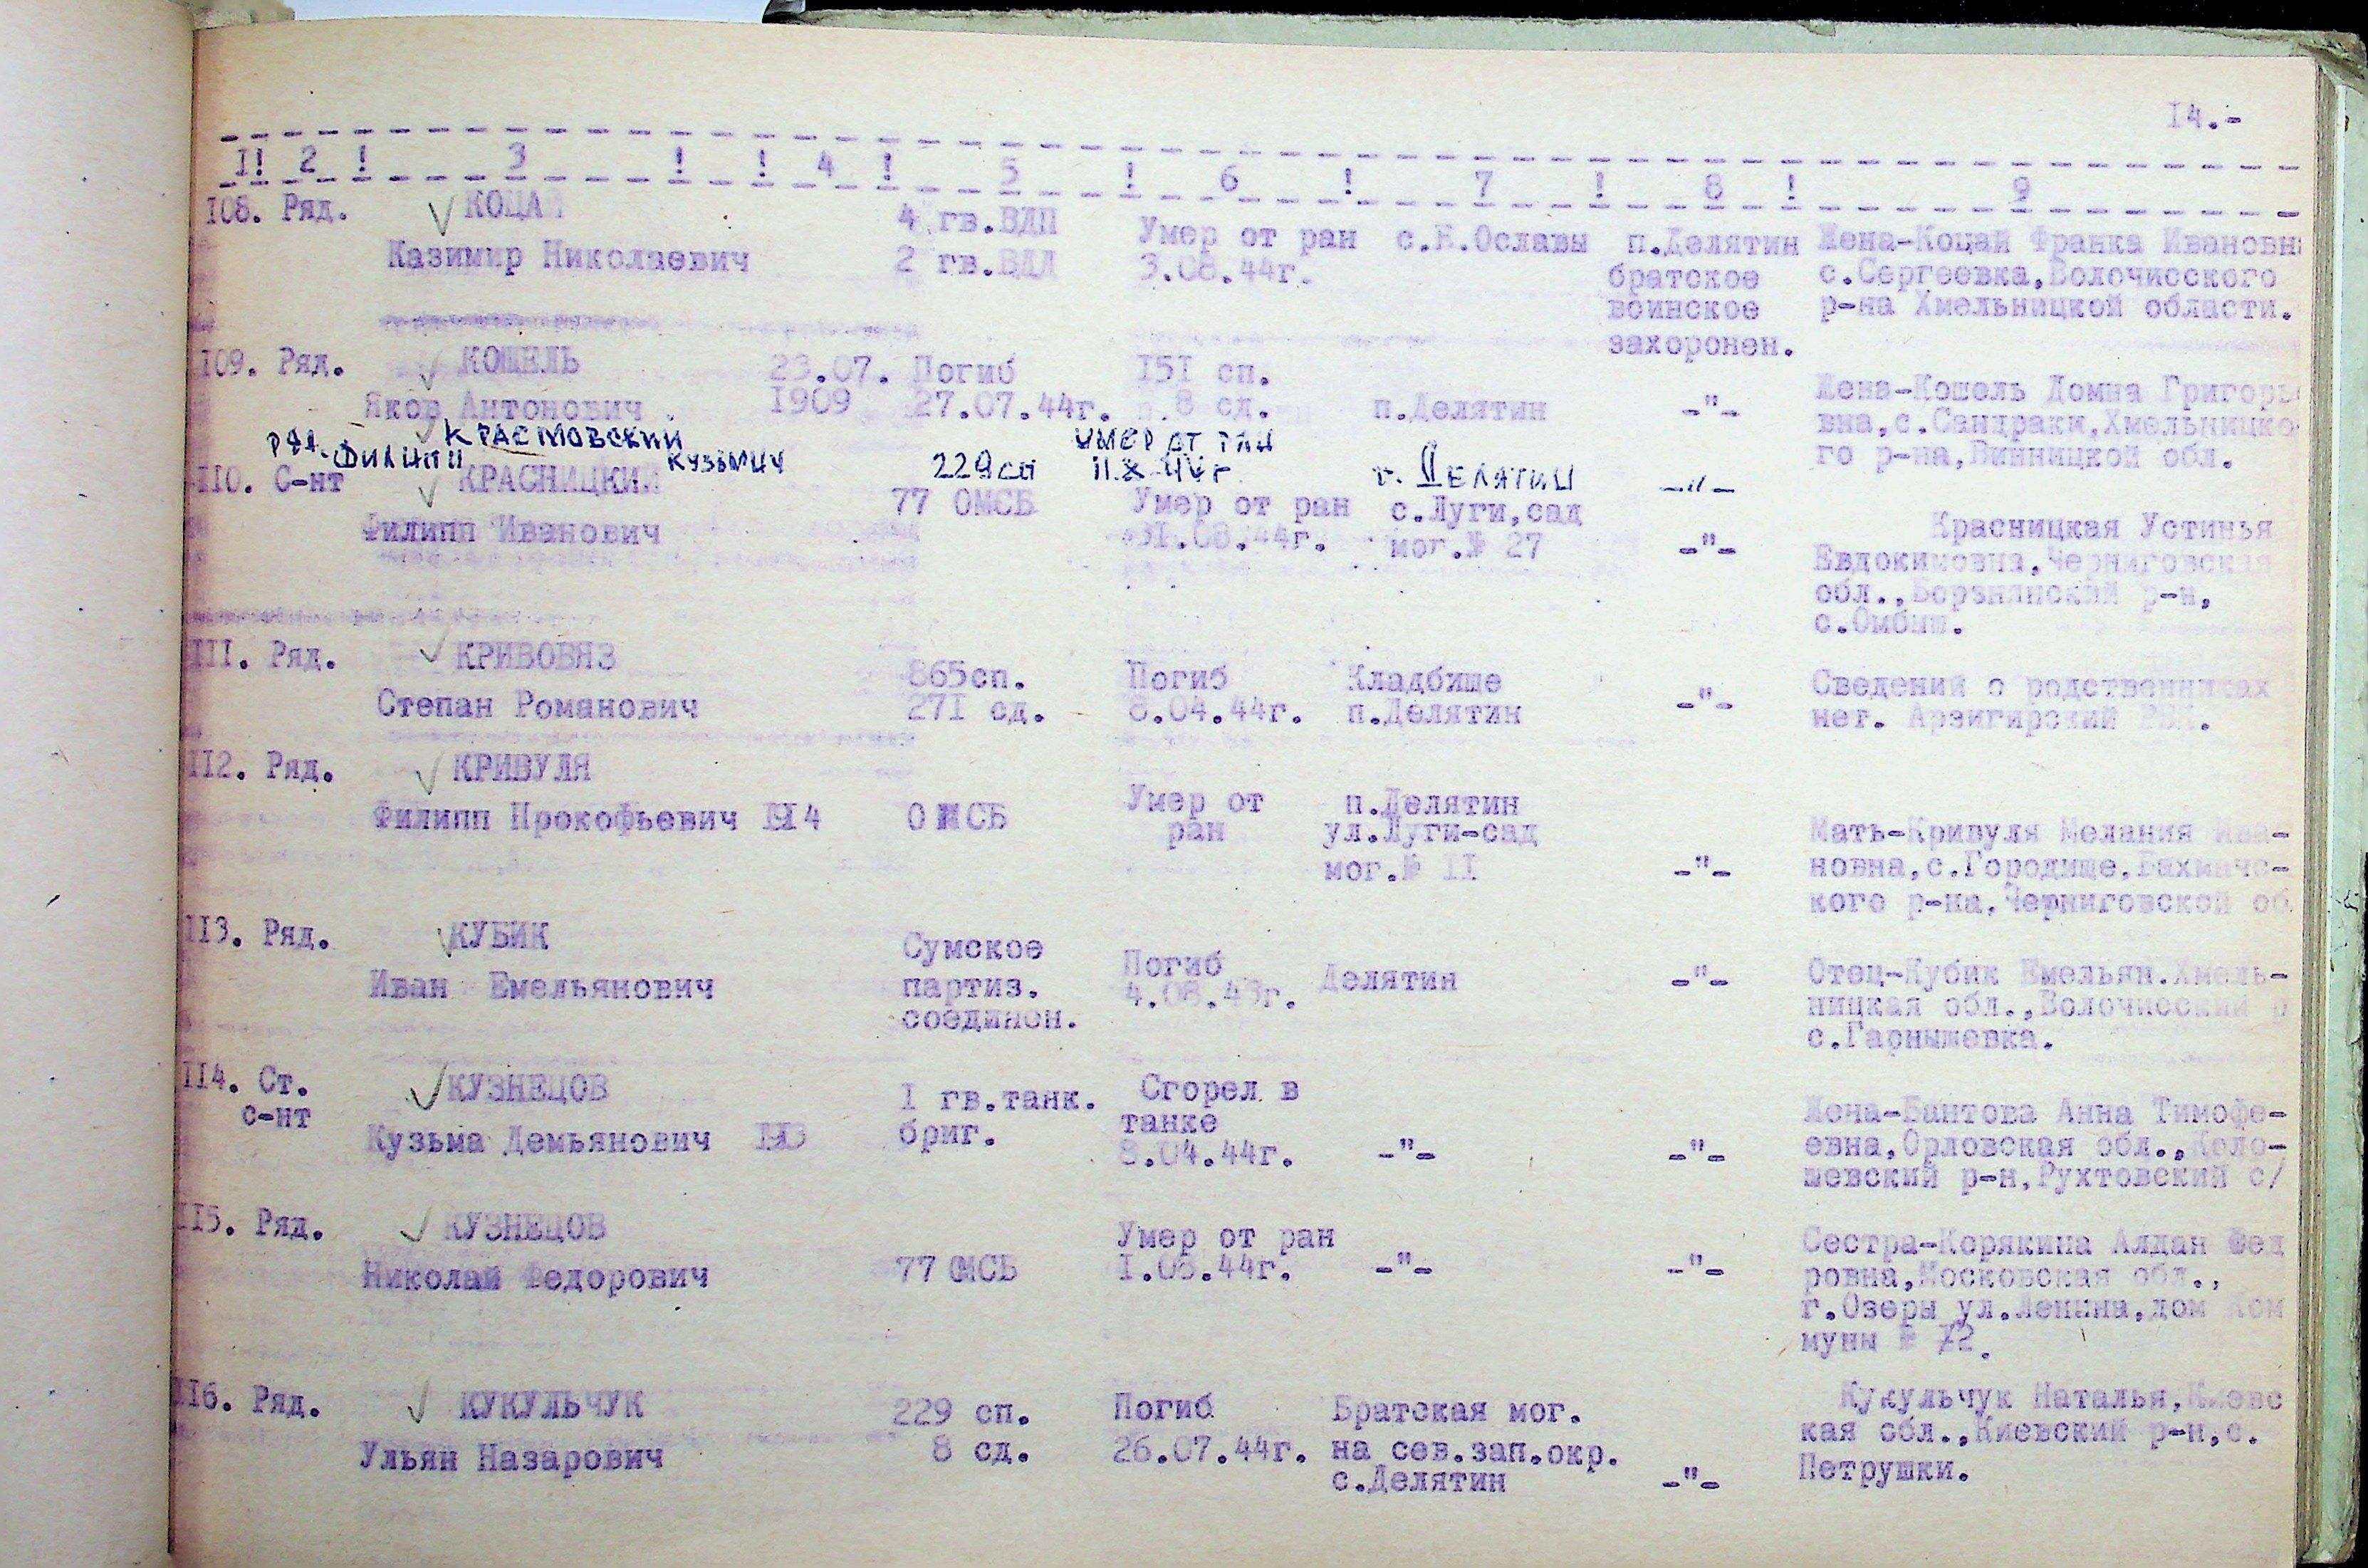 14.-
1! 2 ! 3 ! ! 4 ! 5 ! 6 ! 7 ! 8 ! 9
108. Ряд. КОЦАЙ 4 гв.ВДП Умер от ран с.Б.Ославы п.Делятин Жена-Коцай Франка Ивановн
Казимир Николаевич 2 гв.ВДД 3.08.44г. братское с.Сергеевка,Волочисского
воинское р-на Хмельницкой области.
захоронен.
109. Ряд. КОШЕЛЬ 23.07. Погиб 151 сп. Жена-Кошель Домна Григорье
Яков Антонович 1909 27.07.44г. 8 сд. п.Делятин -"- вна,с.Сандраки,Хмельницко-
го р-на,Винницкой обл.
ряд. Филипп КРАСТОВСКИЙ Кузьмич 229сп УМЕР ОТ РАН г. ДЕЛЯТИН -"-
110. С-нт КРАСНИЦКИЙ 77 ОМСБ Умер от ран с.Луги,сад Красницкая Устинья
Филипп Иванович 31.08.44г. мог.№ 27 -"- Евдокимовна,Черниговская
обл.,Борзнянский р-н,
с.Омбыш.
111. Ряд. КРИВОВЯЗ 865сп. Погиб Кладбище Сведений о родственниках
Степан Романович 271 сд. 8.04.44г. п.Делятин -"- нет. Арзигирский РВК.
112. Ряд. КРИВУЛЯ
Филипп Прокофьевич 1914 ОМСБ Умер от п.Делятин
ран ул.Луги-сад Мать-Кривуля Мелания Ива-
мог.№ 11 -"- новна,с.Городище,Бахмачс-
кого р-на,Черниговской об
113. Ряд. КУБИК Сумское Погиб Делятин -"- Отец-Кубик Емельян.Хмель-
Иван Емельянович партиз. 4.08.43г. ницкая обл.,Волочисский р
соединен. с.Гарнышевка.
114. Ст. КУЗНЕЦОВ 1 гв.танк. Сгорел в
с-нт бриг. танке Жена-Бантова Анна Тимофе-
Кузьма Демьянович 1913 8.04.44г. -"- -"- евна,Орловская обл.,Коло-
шевский р-н,Рухтовский с/
115. Ряд. КУЗНЕЦОВ Умер от ран Сестра-Корякина Алдан Фед
Николай Федорович 77 ОМСБ 1.08.44г. -"- -"- ровна,Московская обл.,
г.Озеры ул.Ленина,дом Ком
муны № 72.
116. Ряд. КУКУЛЬЧУК 229 сп. Погиб Братская мог. Кукульчук Наталья,Киевс
Ульян Назарович 8 сд. 26.07.44г. на сев.зап.окр. кая обл.,Киевский р-н,с.
с.Делятин -"- Петрушки.